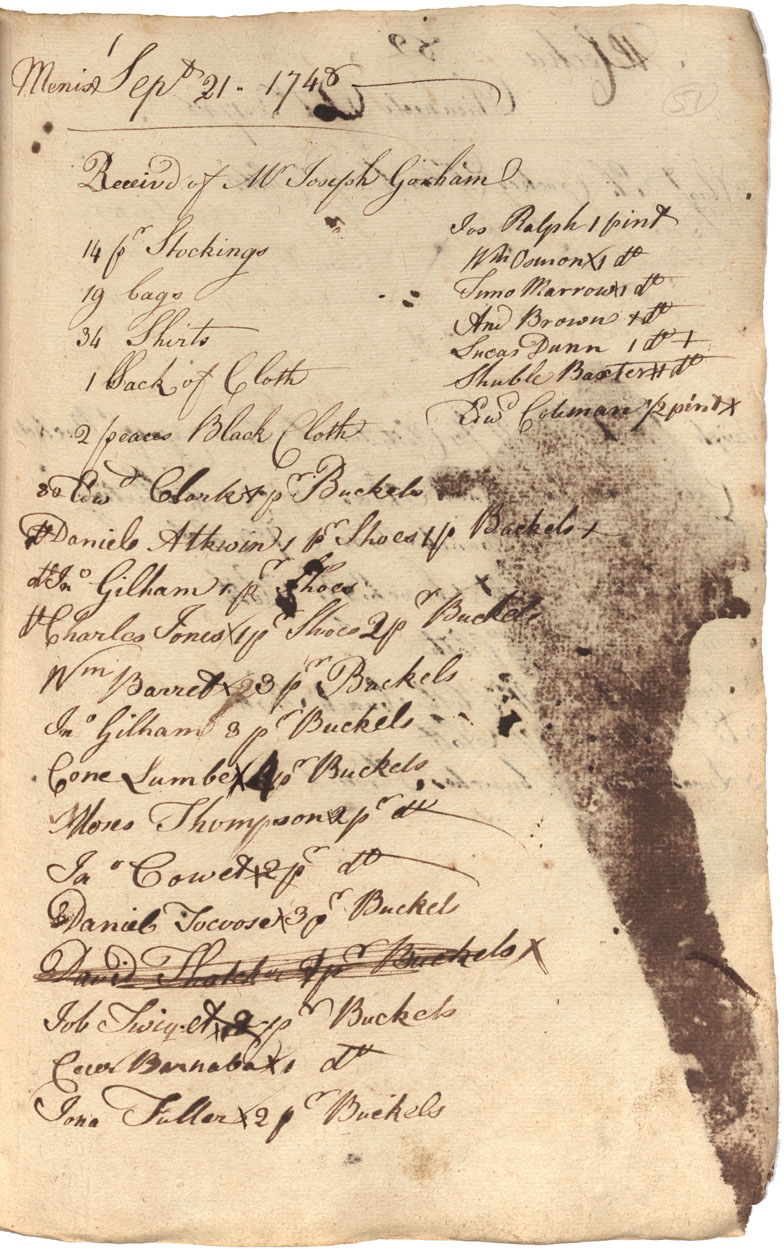 Menis Sept 21. 1748
Receivd of Mr Joseph Gorham
14 pr Stockings
19 bags
34 Shirts
1 Sack of Cloth
2 peaces Black Cloth
Jos Ralph 1 pint
Wm Osmon x 1 do
Timo Marrow x 1 do
And Brown x do
Lucas Dunn 1 do x
Shuble Baxter x 1 do
Edwd Coleman 1/2 pint x
do Edwd Clark x 1 pr Buckels
do Daniels Atkwin 1 pr Shoes 1 p Buckels x
do Jno Gilham 1 pr Shoes x
do Charles Jones x 1 pr Shoes 2 pr Buckels
Wm Barret x 3 pr Buckels
Jno Gilham 3 pr Buckels
Cone Lumbe x pr Buckels
Moses Thompson 2 pr do
Jno Cowet x 2 pr do
Daniel Tocvose x 3 pr Buckels
David pr Buckels x
Job x 2 pr Buckels
Barnaba x 1 do
Jona Fuller x 2 pr Buckels